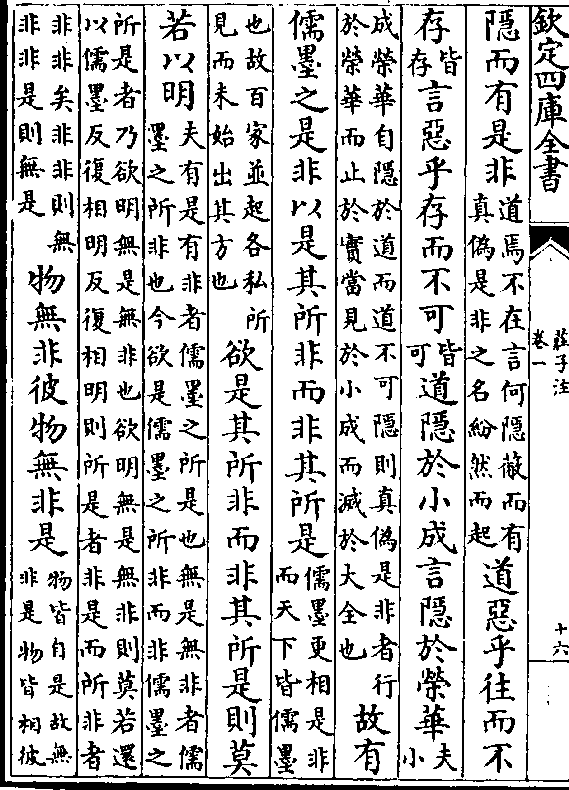 欽定四庫全書
莊子注
卷一
十六
隱而有是非道焉不在言何隱蔽而有真偽是非之名紛然而起道惡乎往而不
存皆存言惡乎存而不可皆可道隱於小成言隱於榮華夫小
成榮華自隱於道而道不可隱則真偽是非者行於榮華而止於實當見於小成而滅於大全也故有
儒墨之是非以是其所非而非其所是儒墨更相是非而天下皆儒墨
也故百家並起各私所見而未始出其方也欲是其所非而非其所是則莫
若以明夫有是有非者儒墨之所是也無是無非者儒墨之所非也今欲是儒墨之所非而非儒墨之
所是者乃欲明無是無非也欲明無是無非則莫若還以儒墨反復相明反復相明則所是者非是而所非者
非非矣非非則無非非是則無是物無非彼物無非是物皆自是故無非是物皆相彼